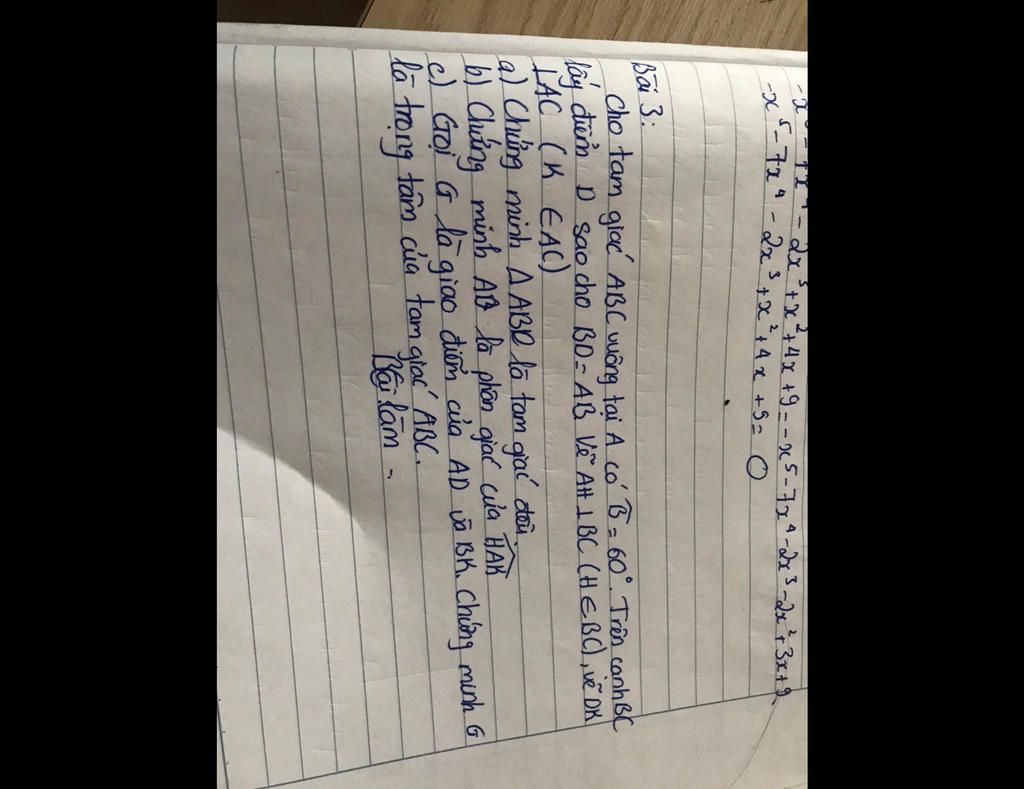 - 2x³ + x² + 4x + 9 = -x⁵ - 7x⁴ - 2x³ - 2x² + 3x + 9
-x⁵ - 7x⁴ - 2x³ + x² + 4x + 9 = 0
Bài 3:
Cho tam giác ABC vuông tại A có B̂ = 60°. Trên cạnh BC
lấy điểm D sao cho BD = AB Vẽ AH ⊥ BC (H ∈ BC), vẽ DK
⊥ AC (K ∈ AC)
a) Chứng minh Δ ABD là tam giác đều.
b) Chứng minh AD là phân giác của HAK
c) Gọi G là giao điểm của AD và BK. Chứng minh G
là trọng tâm của tam giác ABC.
Bài làm -